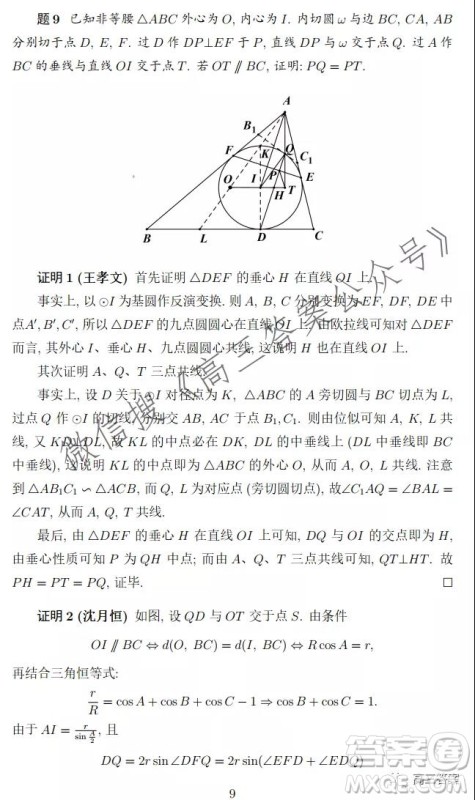 题 9 已知非等腰 △ABC 外心为 O, 内心为 I. 内切圆 ω 与边 BC, CA, AB
分别切于点 D, E, F. 过 D 作 DP⊥EF 于 P, 直线 DP 与 ω 交于点 Q. 过 A 作
BC 的垂线与直线 OI 交于点 T. 若 OT ∥ BC, 证明: PQ = PT.
A
B₁
K
Q
C₁
F
P
E
O
I
H
T
B
L
D
C
证明 1 (王孝文) 首先证明 △DEF 的垂心 H 在直线 OI 上.
事实上, 以 ⊙I 为基圆作反演变换. 则 A, B, C 分别变换为 EF, DF, DE 中
点A′, B′, C′, 所以 △DEF 的九点圆圆心在直线 OI 上, 由欧拉线可知对 △DEF
而言, 其外心 I、垂心 H、九点圆圆心共线, 这说明 H 也在直线 OI 上.
其次证明 A、Q、T 三点共线.
事实上, 设 D 关于 ⊙I 对径点为 K, △ABC 的 A 旁切圆与 BC 切点为 L,
过点 Q 作 ⊙I 的切线, 分别交 AB, AC 于点 B₁, C₁. 则由位似可知 A, K, L 共
线, 又 KD⊥DL, 故 KL 的中点必在 DK, DL 的中垂线上 (DL 中垂线即 BC
中垂线), 这说明 KL 的中点即为 △ABC 的外心 O, 从而 A, O, L 共线. 注意
到 △AB₁C₁ ∽ △ACB, 而 Q, L 为对应点 (旁切圆切点), 故∠C₁AQ = ∠BAL =
∠CAT, 从而 A, Q, T 共线.
最后, 由 △DEF 的垂心 H 在直线 OI 上可知, DQ 与 OI 的交点即为 H,
由垂心性质可知 P 为 QH 中点; 而由 A、Q、T 三点共线可知, QT⊥HT. 故
PH = PT = PQ, 证毕. □
证明 2 (沈月恒) 如图, 设 QD 与 OT 交于点 S. 由条件
OI ∥ BC ⇔ d(O, BC) = d(I, BC) ⇔ R cos A = r,
再结合三角恒等式:
r/R = cos A + cos B + cos C − 1 ⇒ cos B + cos C = 1.
由于 AI = r/sin(A/2), 且
DQ = 2r sin∠DFQ = 2r sin(∠EFD + ∠EDQ)
9
微信搜《高三答案公众号》